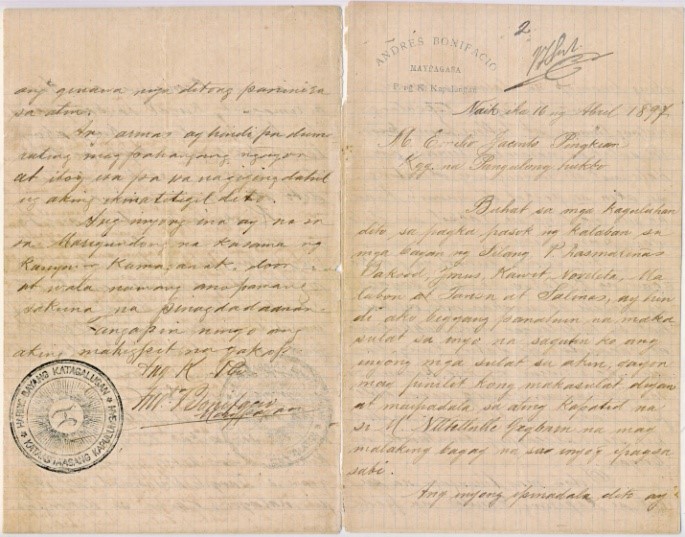 ang ginawa nga ditong
sa atin.
Ang armas ay hindi pa dum
rating magpahangang ngayon
at itoy isa pa sa nagiging dahil
ng aking ikinatitigil dito.
Ang inyong ina ay na sa
sa Marigundong na kasama ng
kanyang Kamaganak, doon
at wala naman
sakuna na pinagdadaanan.
Tangapin ninyo ang
ating mahigpit na yakap.
Ang K. Pla
And Bonifacio
Maypagasa
HARING BAYANG KATAGALUGAN
KATAASTAASANG KAPULUNGAN
2
ANDRÉS BONIFACIO
MAYPAGASA
P. ng K. Kapulungan
Naik ika 16 ng Abril 1897.
M. Emilio Jacinto Pingkian
Kgg. na Pangulong hukbo
Buhat sa mga kaguluhan
dito sa pagka pasok ng kalaban sa
mga bayan ng Silang, P. Dasmariñas
Bakood, Imus, Kawit, Noveleta, Ma
labon at Tansa at Salinas, ay hin
di ako bigyang panahon na maka
sulat sa inyo na sagutin ko ang
inyong mga sulat sa akin, gayon
may pinilit kong makasulat diyan
at maipadala sa ating kapatid na
si G. na may
malaking bagay na sa inyoy ipagsa
sabi.
Ang inyong ipinadala dito ay